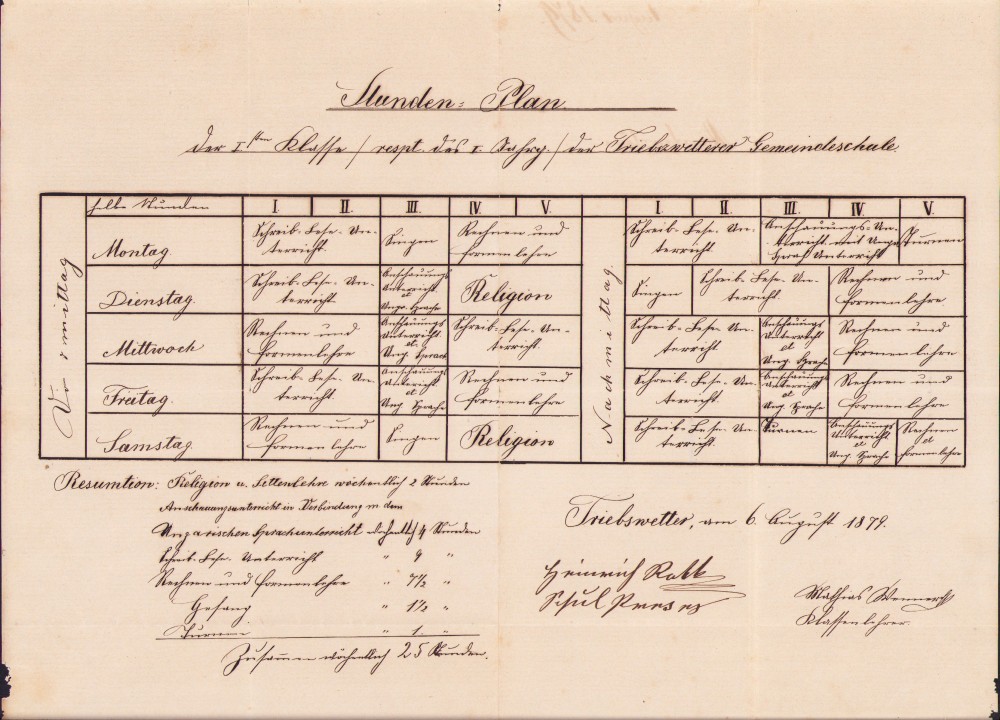 Stunden-Plan
der I.sten Klasse / respt. des I. Jahrg. / der Triebswetterer Gemeindeschule.
Vormittag
halbe Stunden I. II. III. IV. V. I. II. III. IV. V.
Nachmittag.
Montag. Schreib-Lese-Unterricht. Singen Rechnen und Formenlehre Schreib-Lese-Unterricht. Anschauungs-Unterricht mit Ung. Sprach Unterricht Turnen
Dienstag. Schreib-Lese-Unterricht. Anschauungs Unterricht et Ung. Sprache Religion Singen Schreib-Lese-Unterricht. Rechnen und Formenlehre.
Mittwoch Rechnen und Formenlehre Anschauungs Unterricht. et. Ung. Sprach Schreib-Lese-Unterricht. Schreib-Lese-Unterricht. Anschauungs Unterricht et Ung. Sprache Rechnen und Formenlehre
Freitag. Schreib-Lese-Unterricht. Anschauungs Unterricht et Ung. Sprache Rechnen und Formenlehre Schreib-Lese-Unterricht. Anschauungs Unterricht et Ung. Sprache Rechnen und Formenlehre
Samstag. Rechnen und Formenlehre Singen Religion Schreib-Lese-Unterricht. Turnen Anschauungs Unterricht et Ung. Sprache Rechnen et Formenlehre
Resumtion: Religion u. Sittenlehre wöchentlich 2 Stunden
Anschauungsunterricht in Verbindung m dem
Ungarischen Sprachunterricht wöchentlich 4 Stunden
Schreib-Lese-Unterricht " 9 "
Rechnen und Formenlehre " 7½ "
Gesang " 1½ "
Turnen " 1. "
Zusammen wöchentlich 25 Stunden.
Triebswetter, am 6. August 1879.
Heinrich
Schul Preses
Mathias
Klassenlehrer.